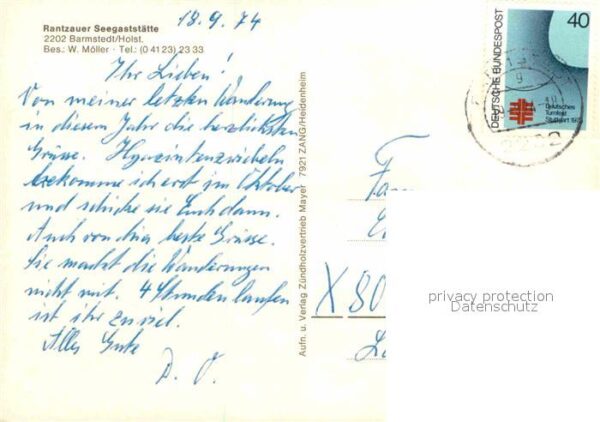 18.9.74
Rantzauer Seegaststätte
2202 Barmstedt/Holst.
Bes.: W. Möller · Tel.: (0 41 23) 23 33
Ihr Lieben!
Von meiner letzten Wanderung
in diesem Jahre die herzlichsten
Grüsse. Hyazintenzwiebeln
bekomme ich erst im Oktober
und schicke sie Euch dann.
Auch von Ina beste Grüsse.
Sie macht die Wanderungen
nicht mit. 4 Stunden laufen
ist ihr zu viel.
Alles Gute
Aufn. u. Verlag Zündholzvertrieb Mayer 7921 ZANG/Heidenheim
DEUTSCHE BUNDESPOST
40
Deutsches
Turnfest
Stuttgart 1973
2202
Fam
X 80
privacy protection
Datenschutz